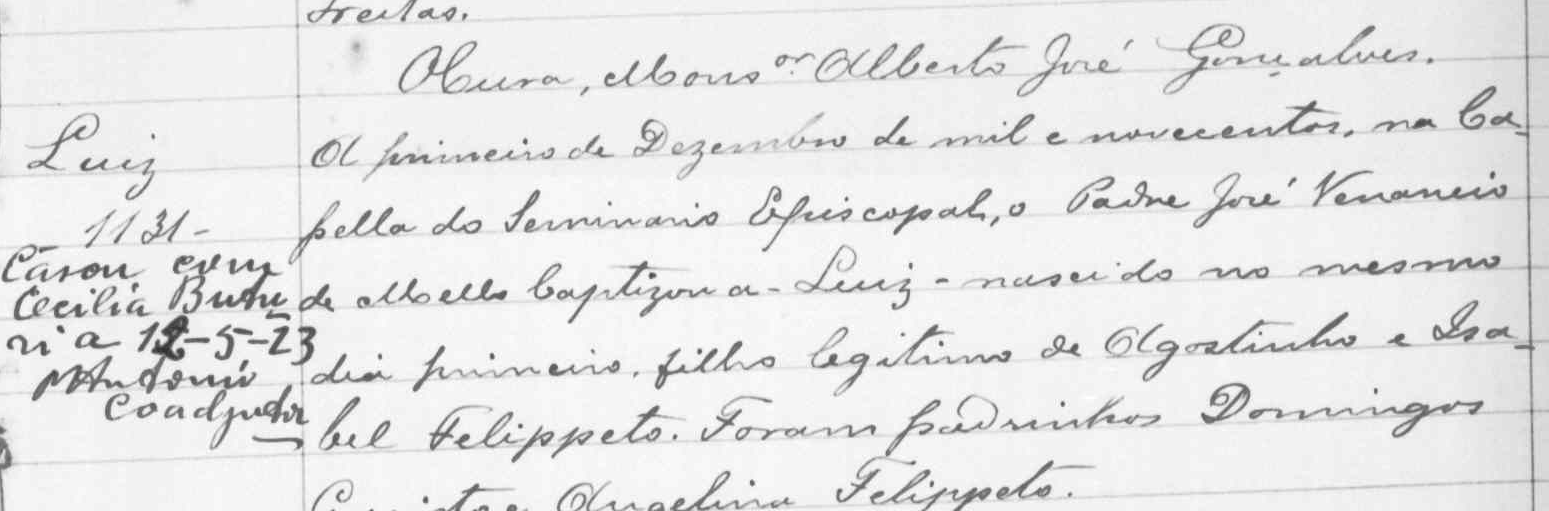 Freitas.
O Cura, Mons.or Alberto José Gonçalves.
Luiz
1131-
Casou com
Cecilia Butu
ri a 12-5-23
P Antonio
Coadjutor
A primeiro de Dezembro de mil e novecentos, na Ca-
pella do Seminario Episcopal, o Padre José Venancio
de Mello baptizou a - Luiz - nascido no mesmo
dia primeiro, filho legitimo de Agostinho e Isa-
bel Felippeto. Foram padrinhos Domingos
e Angelina Felippeto.